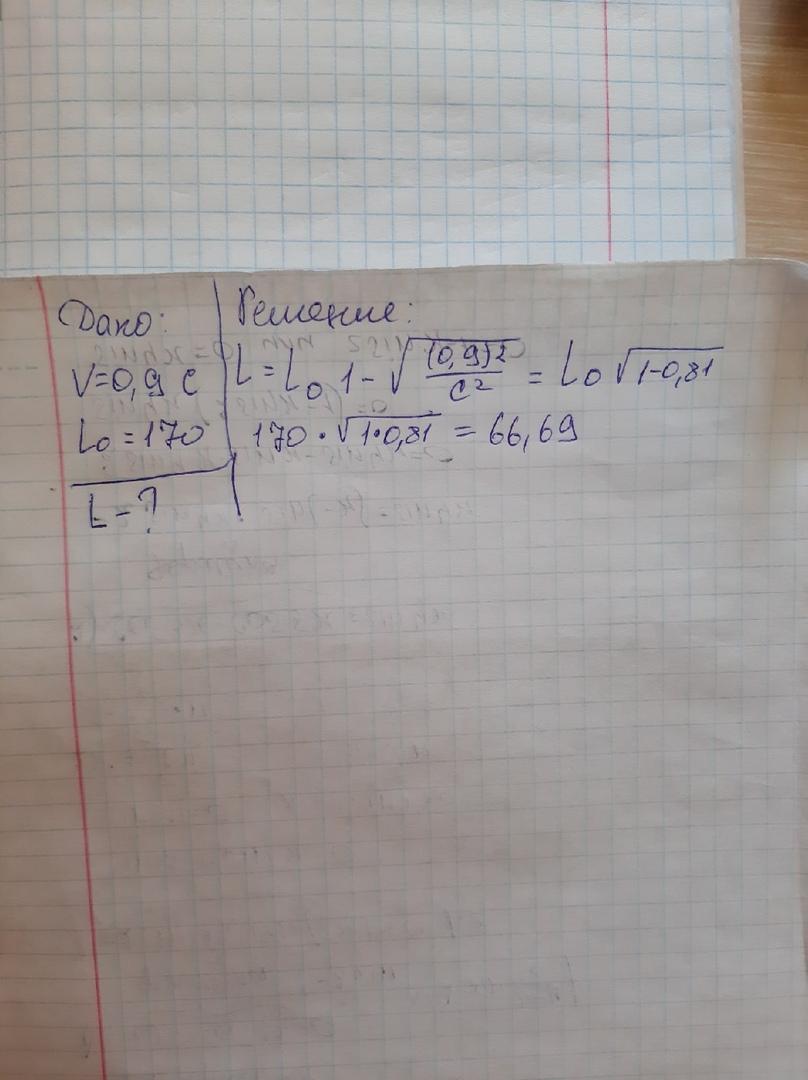 Дано:
V=0,9 c
L₀ = 170
L - ?
Решение:
L = L₀ 1 - √((0,9)²/c²) = L₀ √(1-0,81)
170 · √(1·0,81) = 66,69